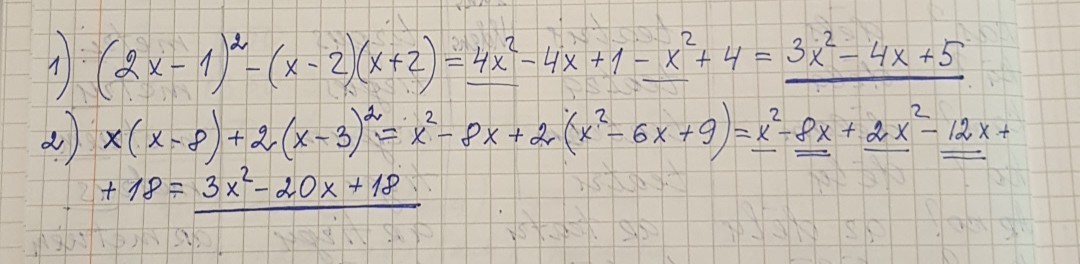 1) (2x-1)² - (x-2)(x+2) = 4x² - 4x + 1 - x² + 4 = 3x² - 4x + 5
2) x(x-8) + 2(x-3)² = x² - 8x + 2(x² - 6x + 9) = x² - 8x + 2x² - 12x +
+ 18 = 3x² - 20x + 18